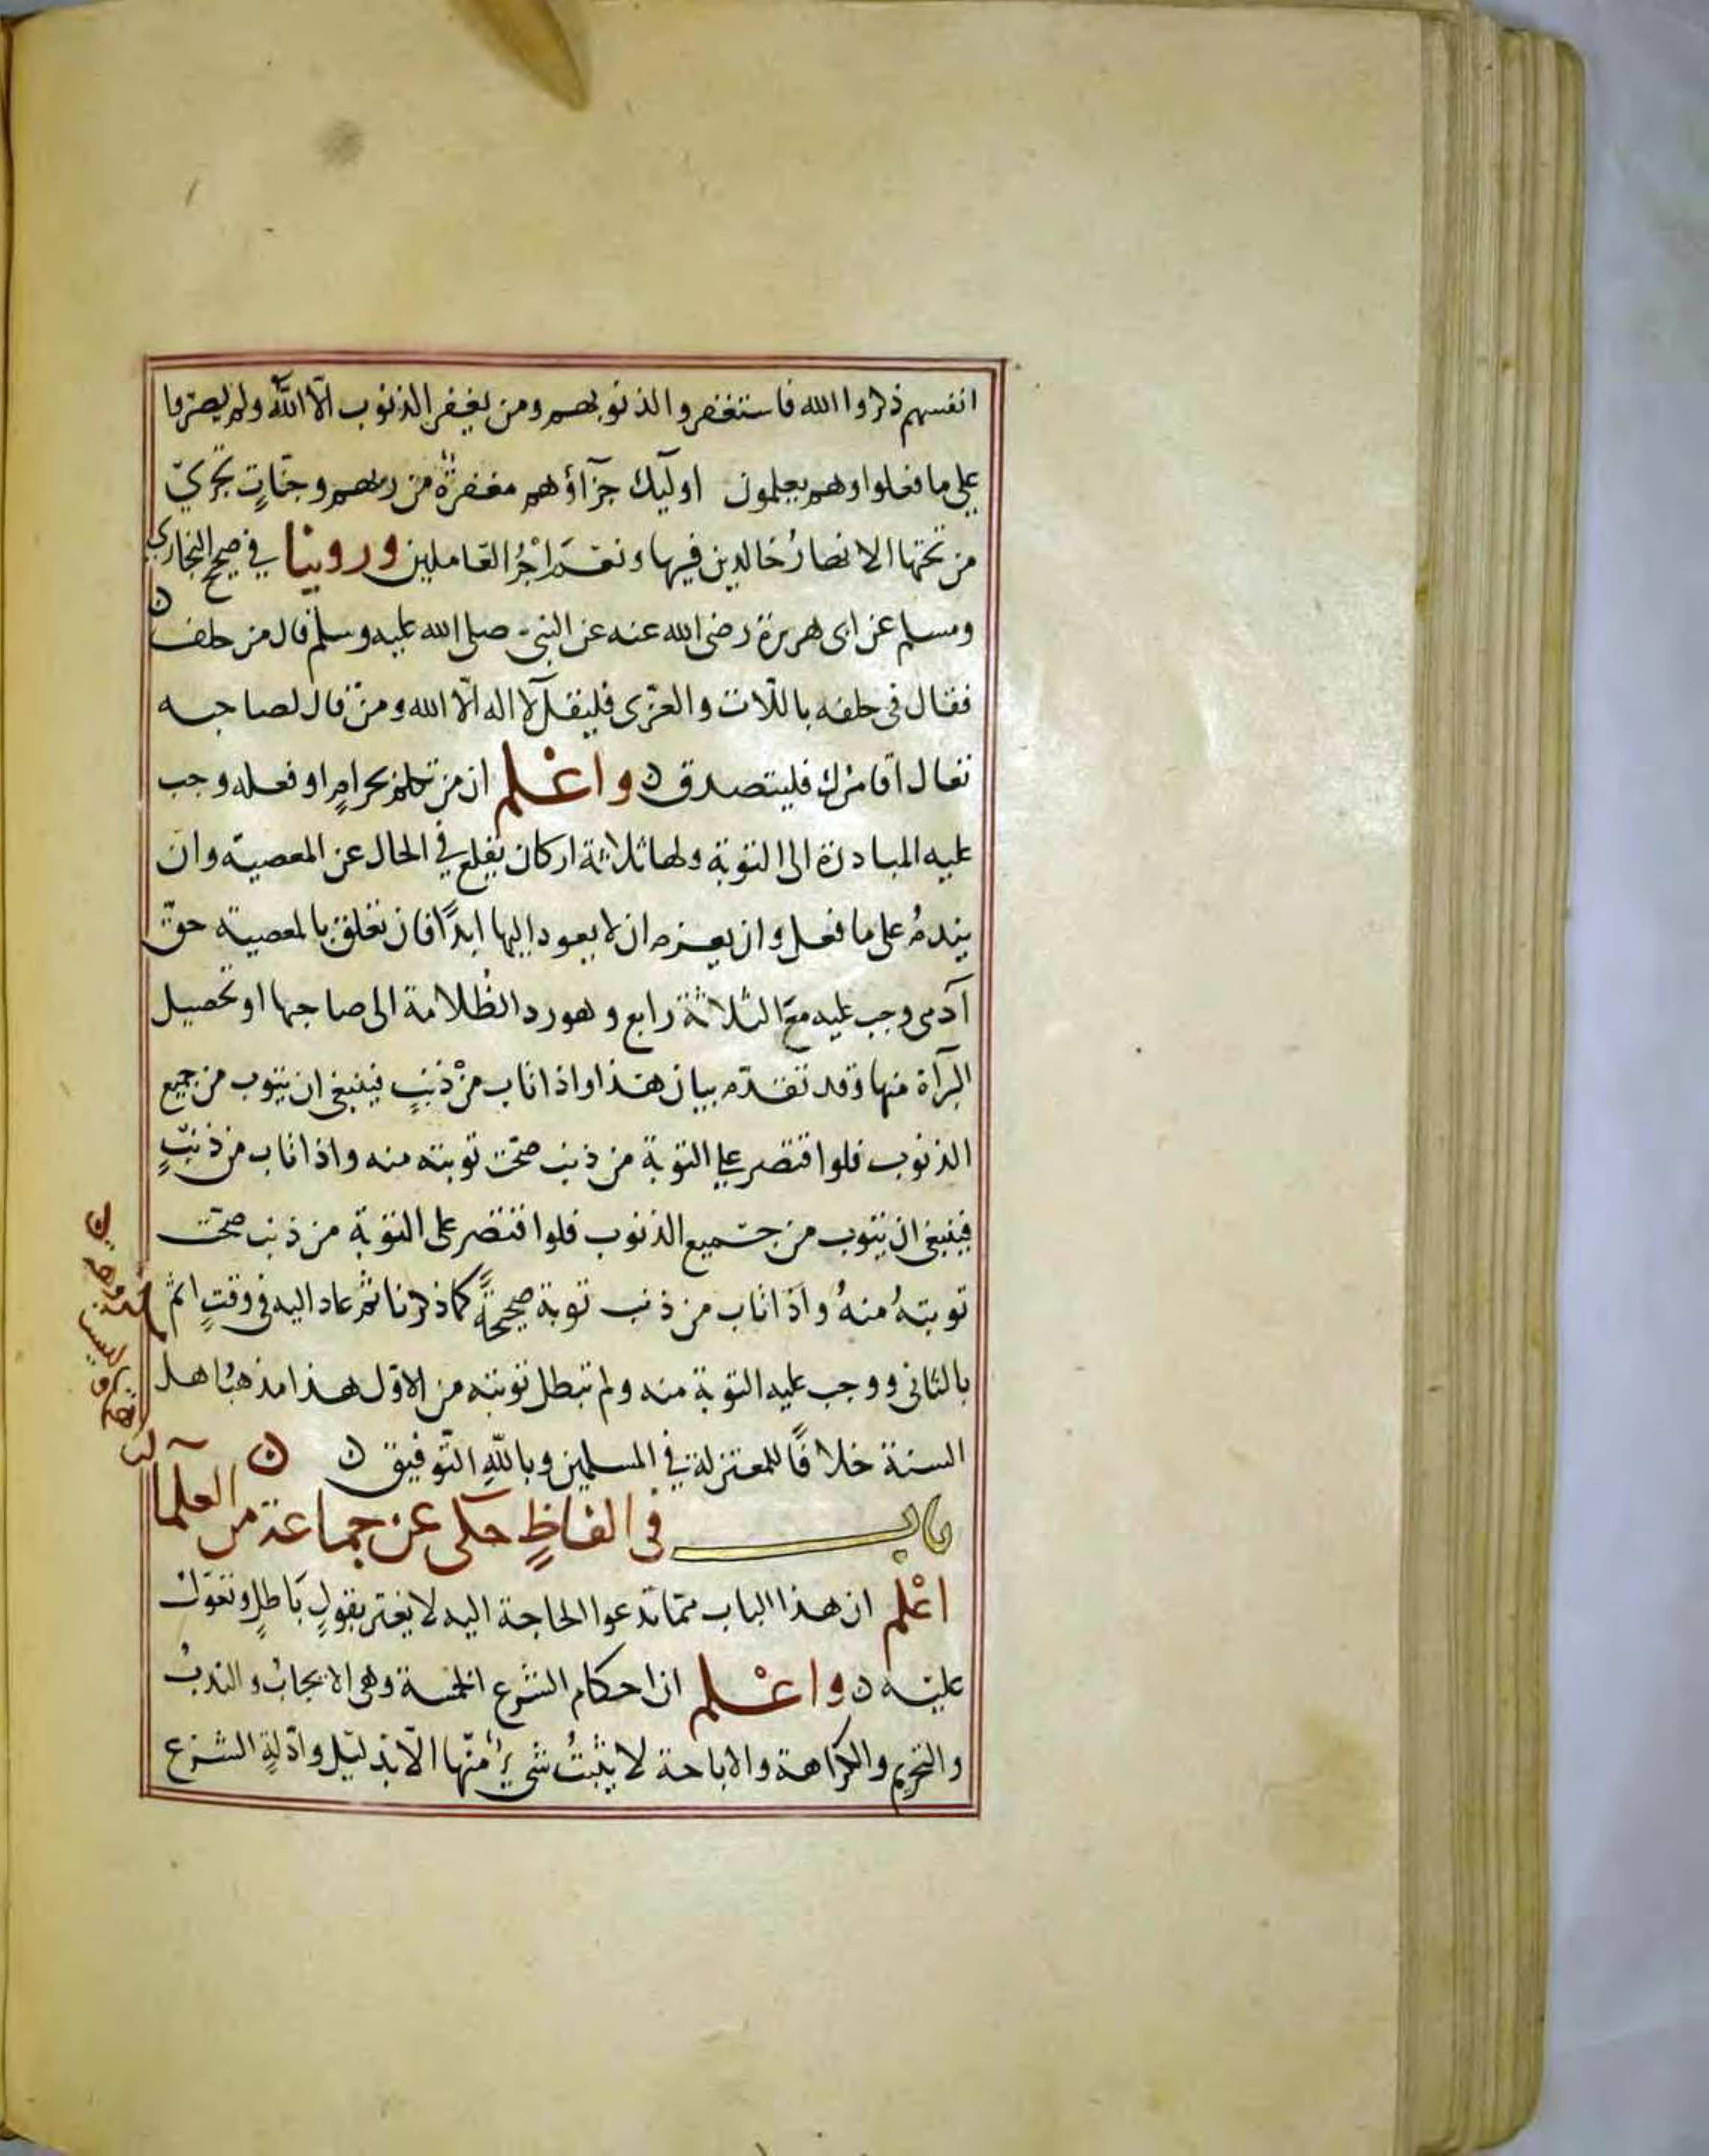 انفسهم ذكروا الله فاستغفروا لذنوبهم ومن يغفر الذنوب الّا اللّه ولم يصرّوا
على ما فعلوا وهم يعلمون اوليك جزآؤهم مغفرة من ربهم وجنّاتٍ تجري
من تحتها الانهارُ خالدين فيها ونعم اجْرُ العاملين وروينا في صحيح البخاري
ومسلم عن ابى هريرة رضى الله عنه عن النبى صلى الله عليه وسلم قال من حلف
فقال فى حلفه باللّات والعزّى فليقل لا اله الّا الله ومن قال لصاحبه
تعال اقامرك فليتصدق ن واعْلم ان من تكلم بحرامٍ او فعله وجب
عليه المبادرة الى التوبة ولها ثلاثة اركان يقلع في الحال عن المعصية وان
يندمُ على ما فعل وان يعزم ان لا يعود اليها ابدًا فان تعلق بالمعصية حقّ
آدمى وجب عليه مع الثلاثة رابع وهو رد الظُلامة الى صاحبها او تحصيل
البرآة منها وقد تقدّم بيان هذا واذا تاب منْ ذنبٍ فينبغى ان يتوب من جميع
الذنوب فلو اقتصر على التوبة من ذنب صحّت توبته منه واذا تاب من ذنبٍ
فينبغى ان يتوب من جميع الذنوب فلو اقتصر على التوبة من ذنب صحّت
توبتهُ منهُ واذا تاب من ذنب توبة صحيحةً كما ذكرنا ثم عاد اليه فى وقتٍ اثم
بالثانى ووجب عليه التوبة منه ولم تبطل توبته من الاوّل هذا مذهبُ اهل
السنة خلافًا للمعتزلة في المسلمين وباللّهِ التّوفيق ن ن
باب فى الفاظٍ حكى عن جماعة من العلمآ
اعْلم ان هذا الباب ممّا تدعوا الحاجة اليه لا يغتر بقولٍ باطلٍ وتعوّل
عليه ن واعْلم ان احكام الشرع الخمسة وهى الايجابُ والندبُ
والتحريم والكراهة والاباحة لا يثبتُ شىء منها الّا بدليل وادّلةِ الشرع